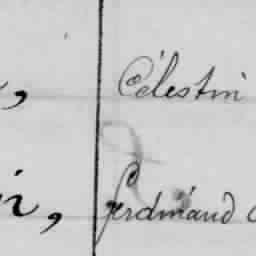 , Célestin
, Ferdinand